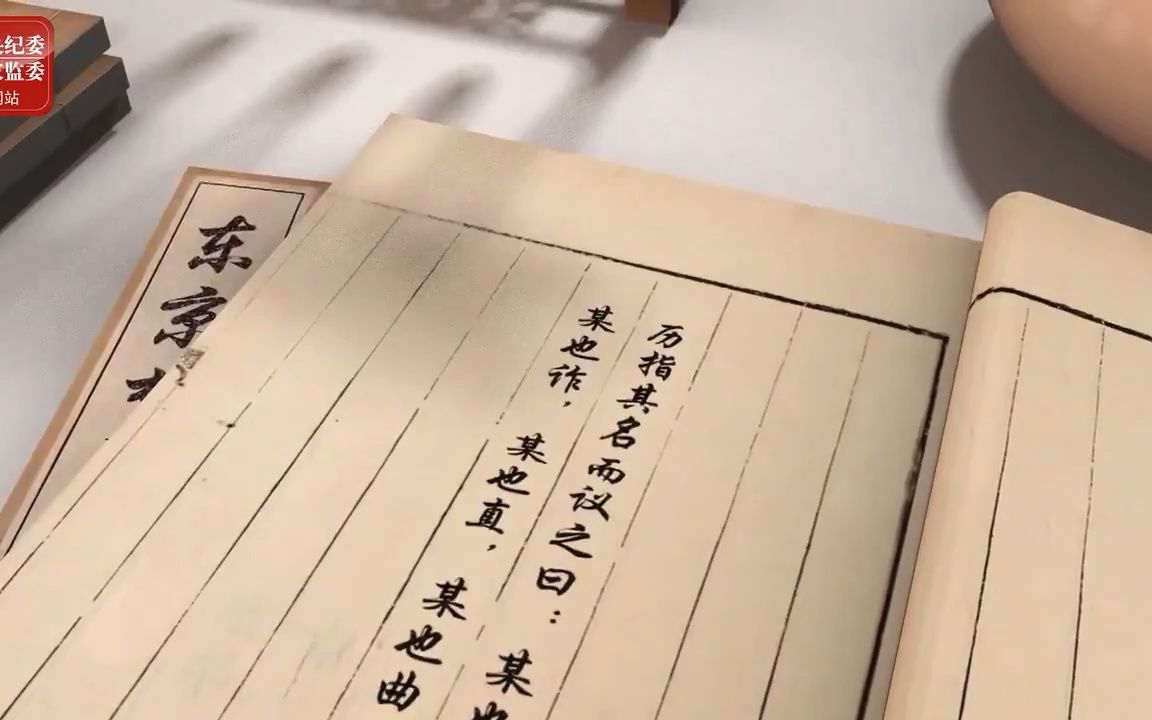 纪委
监委
网站
东京
历指其名而议之曰：某也
某也诈，某也直，某也曲